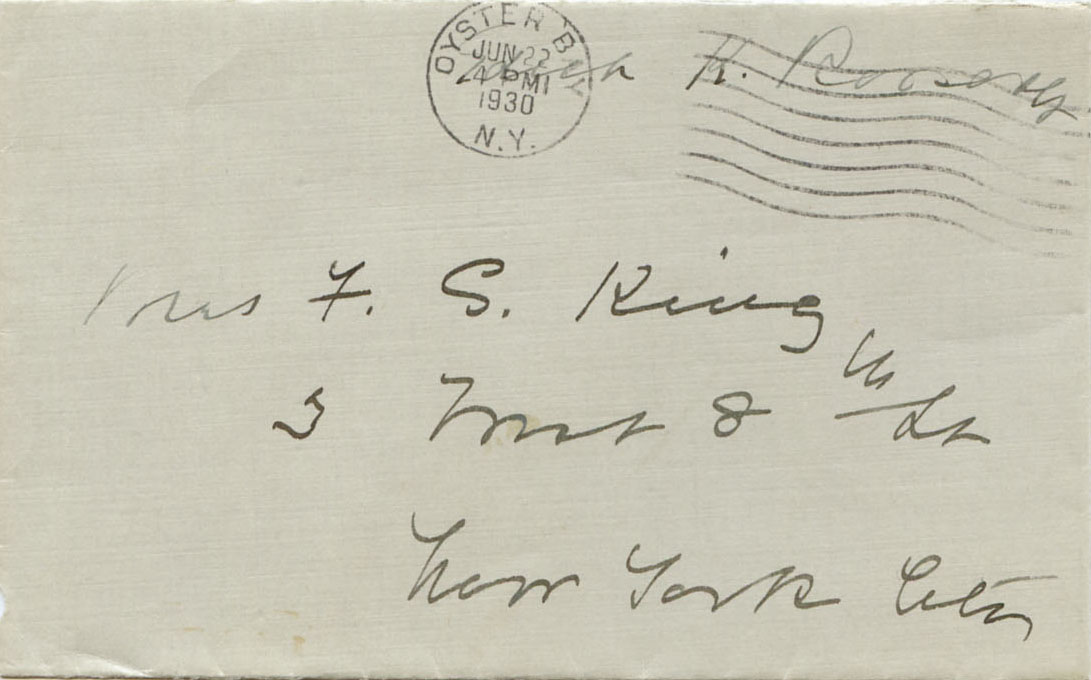 OYSTER BAY
JUN 22
4 PM
1930
N.Y.
Edith K. Roosevelt
Mrs F. S. King
3 West 8th St
New York City